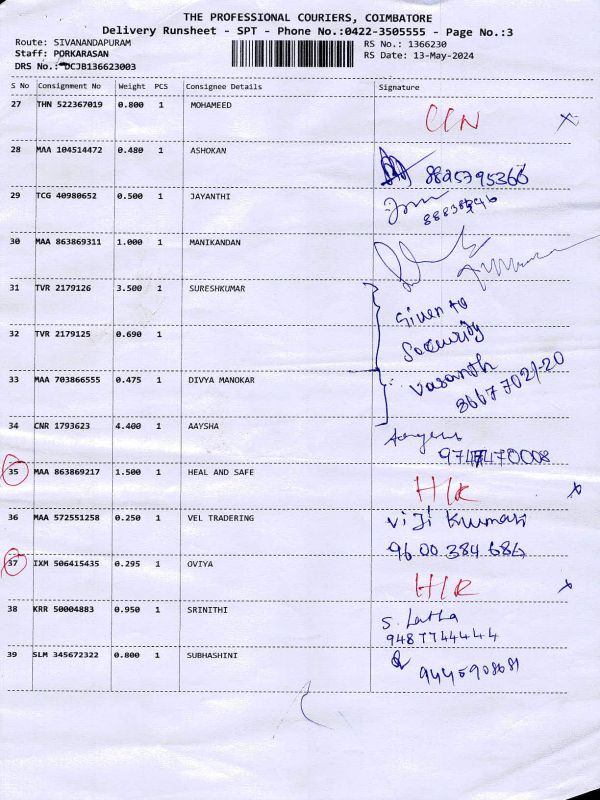 THE PROFESSIONAL COURIERS, COIMBATORE
Delivery Runsheet - SPT - Phone No.:0422-3505555 - Page No.:3
Route: SIVANANDAPURAM RS No.: 1366230
Staff: PORKARASAN RS Date: 13-May-2024
DRS No.: DCJB136623003
S No Consignment No Weight PCS Consignee Details Signature
27 THN 522367019 0.800 1 MOHAMEED CCN X
28 MAA 104514472 0.480 1 ASHOKAN 8825795366
29 TCG 40980652 0.500 1 JAYANTHI
30 MAA 863869311 1.000 1 MANIKANDAN
31 TVR 2179126 3.500 1 SURESHKUMAR Given to
32 TVR 2179125 0.690 1 Security
33 MAA 703866555 0.475 1 DIVYA MANOKAR Vasanth
8667702120
34 CNR 1793623 4.400 1 AAYSHA
35 MAA 863869217 1.500 1 HEAL AND SAFE H/R X
36 MAA 572551258 0.250 1 VEL TRADERING Viji Kumari
9600384686
37 IXM 506415435 0.295 1 OVIYA H/R X
38 KRR 50004883 0.950 1 SRINITHI S. Latha
9487744444
39 SLM 345672322 0.800 1 SUBHASHINI 9445908681